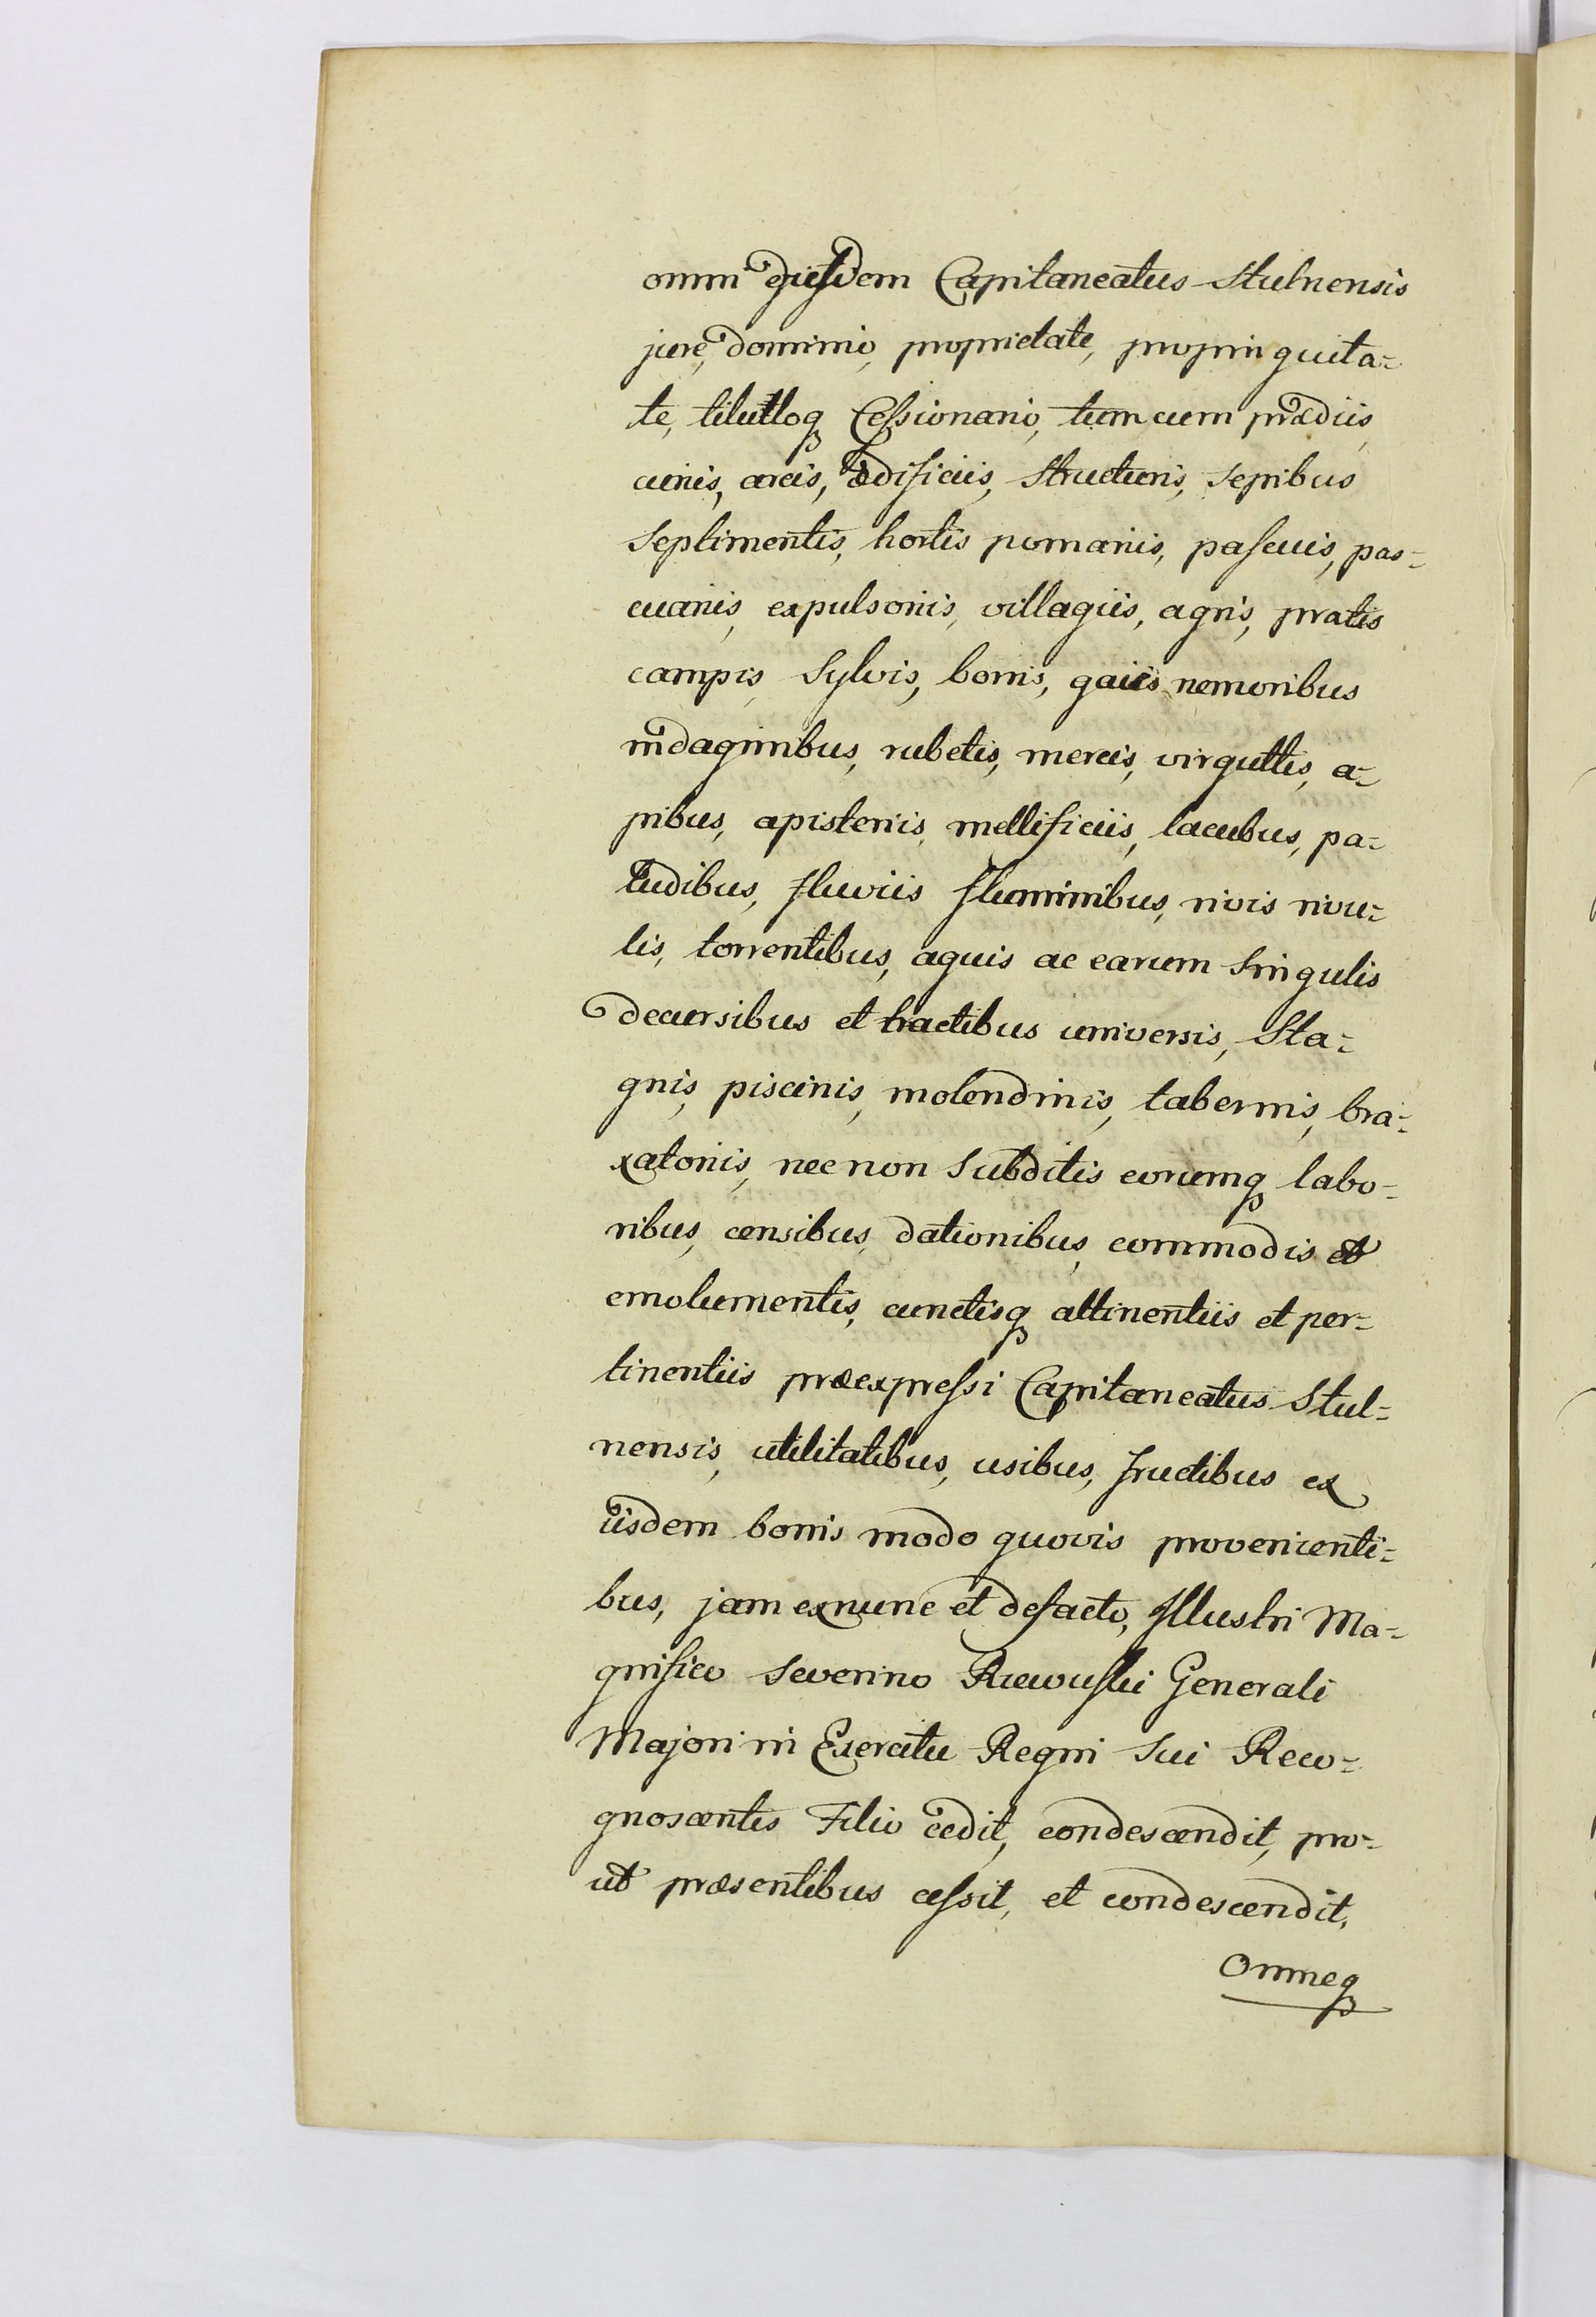 omni ejusdem Capitaneatus Stulnensis
jure, dominio, proprietate, propinquita=
te, tituloq Cessionario, tum cum prædiis,
curiis, areis, ædificiis, structuris, sepibus
septimentis, hortis pomariis, pascuis, pas=
cuariis, expulsoriis, villagiis, agris, pratis
campis, Sylvis, borris, gaiis nemoribus
indaginibus, rubetis, mericis, virgultis, a=
pibus, apisteriis, mellificiis, lacubus, pa=
ludibus, fluviis fluminibus, rivis rivu=
lis, torrentibus, aquis ac earum singulis
decursibus et tractibus universis, Sta=
gnis, piscinis, molendinis, tabernis, bra=
xatoriis, nec non Subditis eorumq labo=
ribus, censibus, dationibus, commodis et
emolumentis, cunctisq attinentiis et per=
tinentiis præexpressi Capitaneatus Stul=
nensis, utilitatibus, usibus, fructibus ex
iisdem bonis modo quovis provenienti=
bus, jam exnunc et defacto, Illustri Ma=
gnifico Severino Rzewuski Generali
Majori in Exercitu Regni Sui Reco=
gnoscentis Filio cedit, condescendit, pro=
ut præsentibus cessit, et condescendit,
Omneq